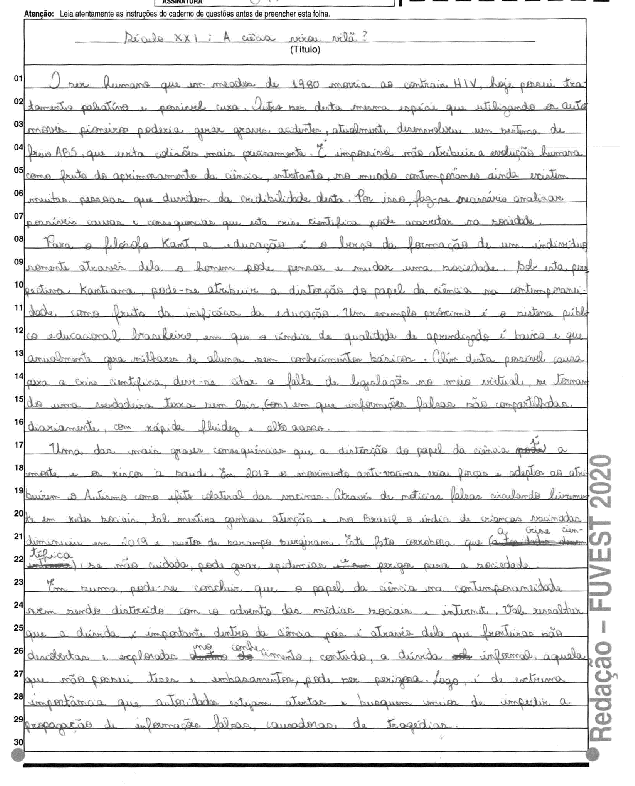 ASSINATURA
Atenção: Leia atentamente as instruções do caderno de questões antes de preencher esta folha.
Século XXI: A ciência virou vilã?
(Título)
01 O ser humano que em meados de 1980 morria ao contrair HIV, hoje possui tra-
02 tamento paliativo e possível cura. Outro ser desta mesma espécie que utilizando os auto
03 móveis pioneiros poderia gerar graves acidentes, atualmente desenvolveu um sistema de
04 freio ABS, que evita colisões mais precisamente. É impossível não atribuir a evolução humana
05 como fruto do aprimoramento da ciência, entretanto, no mundo contemporâneo ainda existem
06 muitas pessoas que duvidam da credibilidade desta. Por isso, faz-se necessário analisar
07 possíveis causas e consequências que esta crise científica pode acarretar na sociedade.
08 Para o filósofo Kant, a educação é o berço da formação de um indivíduo
09 somente através dela o homem pode pensar e mudar uma sociedade. Sob esta pers
10 pectiva Kantiana, pode-se atribuir a distorção do papel da ciência na contemporanei-
11 dade, como fruto da ineficácia da educação. Um exemplo próximo é o sistema públi
12 co educacional brasileiro, em que o índice de qualidade de aprendizado é baixo e que
13 anualmente gera milhares de alunos sem conhecimentos básicos. Além desta possível causa
14 para a crise científica, deve-se citar a falta de legislações no meio virtual, se tornan
15 do uma verdadeira terra sem leis, em que informações falsas são compartilhadas
16 diariamente, com rápida fluidez e alto acesso.
17 Uma das mais graves consequências que a distorção do papel da ciência é a
18 morte e os riscos à saúde. Em 2017 o movimento anti-vacinas criou forças e adeptos ao atri
19 buírem o Autismo como efeito colateral das vacinas. Através de notícias falsas circulando livremen
20 te em redes sociais tal mentira ganhou atenção e no Brasil o índice de crianças vacinadas
21 diminuiu em 2019 e surtos de sarampo surgiram. Este fato corrobora que a crise cien-
22 tífica se não cuidada, pode gerar epidemias e perigo para a sociedade.
23 Em suma, pode-se concluir que o papel da ciência na contemporaneidade
24 vem sendo distorcido com o advento das mídias sociais e internet. Vale ressaltar
25 que a dúvida é importante dentro da ciência pois é através dela que fronteiras são
26 descobertas e exploradas no conhecimento, contudo, a dúvida informal, aquela
27 que não possui teses e embasamentos, pode ser perigosa. Logo, é de extrema
28 importância que autoridades estejam atentas e busquem meios de impedir a
29 propagação de informações falsas, causadoras de tragédias.
30
Redação – FUVEST 2020